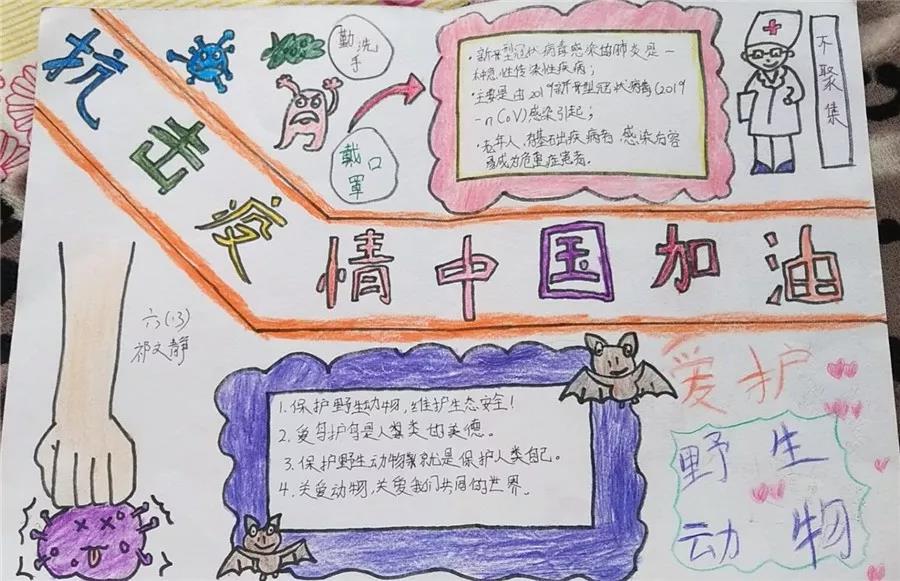 抗击疫情中国加油
勤洗手
戴口罩
·新型冠状病毒感染的肺炎是一
种急性传染性疾病;
·主要是由2019新型冠状病毒(2019
-nCoV)感染引起;
·老年人,有基础疾病者,感染后容
易成为危重症患者.
不聚集
六(13)
祁文静
1.保护野生动物,维护生态安全!
2.爱鸟护鸟是人类的美德。
3.保护野生动物就是保护人类自己。
4.关爱动物,关爱我们共同的世界。
爱护
野生
动物